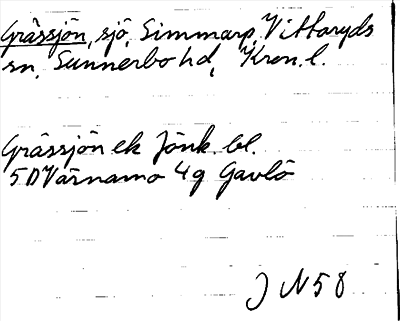 Gråssjön, sjö, Simmarp, Vittaryds
sn, Sunnerbo hd, Kron. l.
Gråssjön ek Jönk. bl.
5D Värnamo 4g Gavlö
J N 58